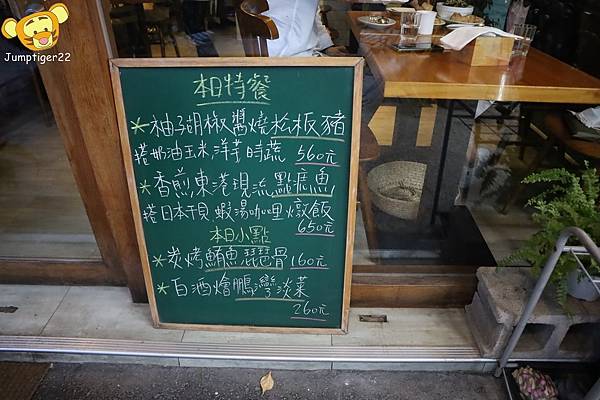 Jumptiger22
本日特餐
*柚子胡椒醬燒松板豬
搭奶油玉米,洋芋時蔬 560元
*香煎東港現流點底魚
搭日本干貝蝦湯咖哩燉飯
650元
本日小點
*炭烤鮪魚琵琶骨160元
*白酒燴鵬灣淡菜
260元